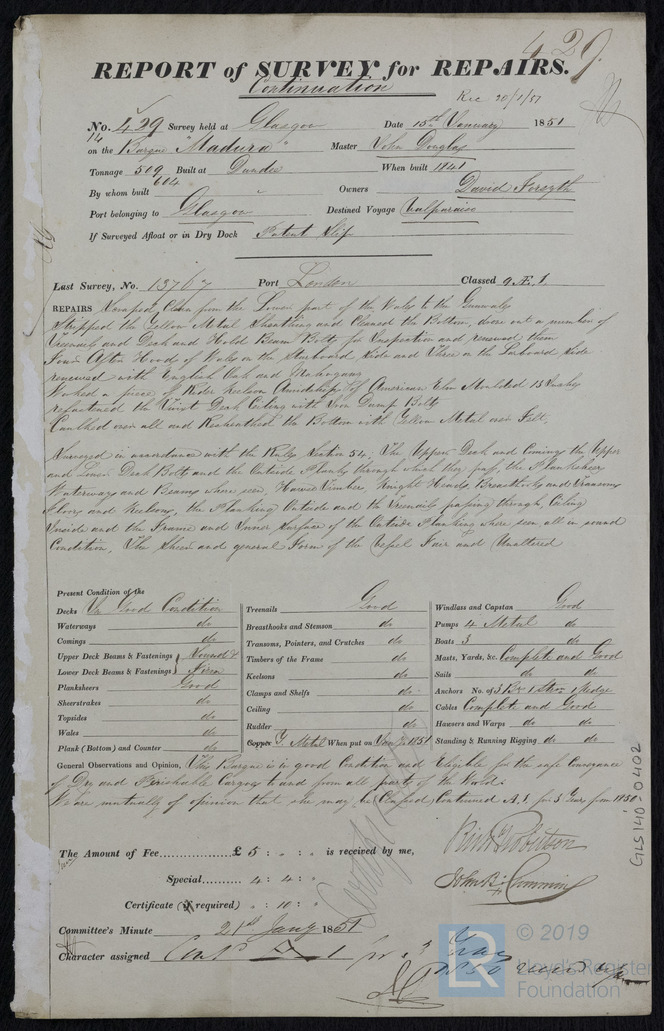 429.
REPORT of SURVEY for REPAIRS.
Continuation
Rec 20/1/51
No. 429 Survey held at Glasgow Date 15th January 1851
on the Barque "Madura" Master John Douglas
Tonnage 509 Built at Dundee When built 1841
604
By whom built Owners David Forsyth
Port belonging to Glasgow Destined Voyage Valparaiso
If Surveyed Afloat or in Dry Dock Patent Slip
Last Survey, No. 13767 Port London Classed 9 Æ 1
REPAIRS Scraped Clean from the Lower part of the Wales to the Gunwales
Stripped the Yellow Metal Sheathing and Cleaned the Bottom, drove out a number of
Treenails and Deck and Hold Beam Bolts for Inspection and renewed them
Four After Hoods of Wales on the Starboard Side and Three on the Larboard Side
renewed with English Oak and Mahogany
Worked a piece of Rider Keelson Amidships of American Elm Moulded 13 Inches
refastened the Twixt Deck Ceiling with Iron Dump Bolts
Caulked over all and Resheathed the Bottom with Yellow Metal over Felt,
Surveyed in accordance with the Rules Section 54; The Upper Deck and Comings the Upper
and Lower Deck Bolts and the Outside Planks through which they pass, the Planksheers
Waterways and Beams where seen, Hawse Timbers Knight Heads, Breasthooks and Transoms
Floors and Keelsons, the Planking Outside and the Treenails passing through, Ceiling
Inside and the Frame and Inner Surface of the Outside Planking where seen, all in sound
Condition, The Sheer and general Form of the Vessel Fair and Unaltered
Present Condition of the
Decks In Good Condition
Waterways do
Comings do
Upper Deck Beams & Fastenings Sound &
Lower Deck Beams & Fastenings Firm
Planksheers Good
Sheerstrakes do
Topsides do
Wales do
Plank (Bottom) and Counter do
Treenails Good
Breasthooks and Stemson do
Transoms, Pointers, and Crutches do
Timbers of the Frame do
Keelsons do
Clamps and Shelfs do
Ceiling do
Rudder do
Copper Y. Metal When put on Jany. 1851
Windlass and Capstan Good
Pumps 4 Metal do
Boats 3 do
Masts, Yards, &c. Complete and Good
Sails do do
Anchors No. of 3 Br 1 Strm 1 Kedge
Cables Complete and Good
Hawsers and Warps do do
Standing & Running Rigging do do
General Observations and Opinion, This Barque is in good Condition and Eligible for the safe Conveyance
of Dry and Perishable Cargoes to and from all parts of the World.
We are mutually of opinion that she may be (Classed) Continued A. 1. for 3 Years from 1850
The Amount of Fee........... £ 5 : . : . is received by me,
Special.......... 4 : 4 : .
Certificate (if required) . : 10 : .
Robertson
John B. Cumming
Committee's Minute 21st Jany 1851
Character assigned Cont. A 1 for 3 Years
GLS140-0402
© 2019
LR Lloyd's Register
Foundation